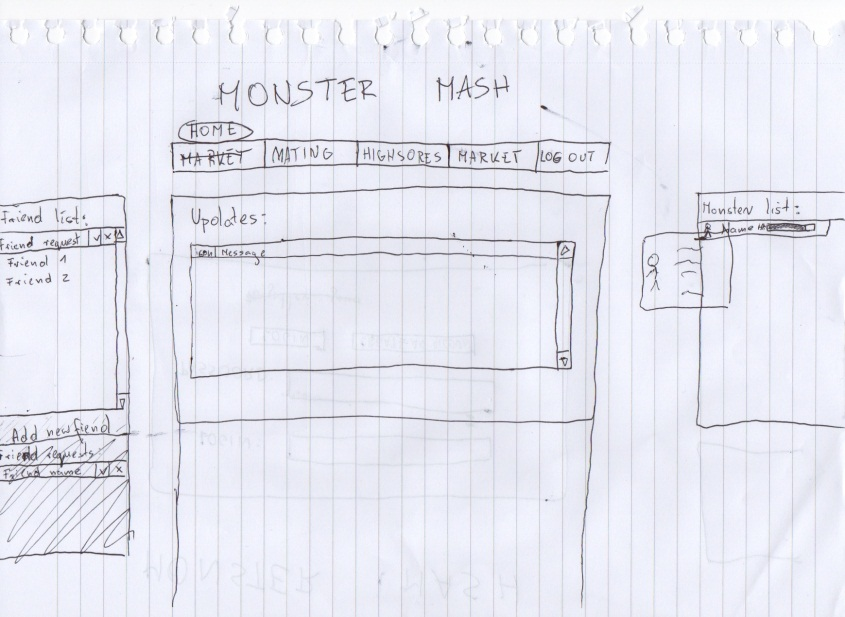 MONSTER MASH
HOME
MARKET MATING HIGHSORES MARKET LOG OUT
Friend list:
Friend request
Friend 1
Friend 2
Add new fiend
Friend requests:
Friend name
Updates:
Message
Monster list:
Name